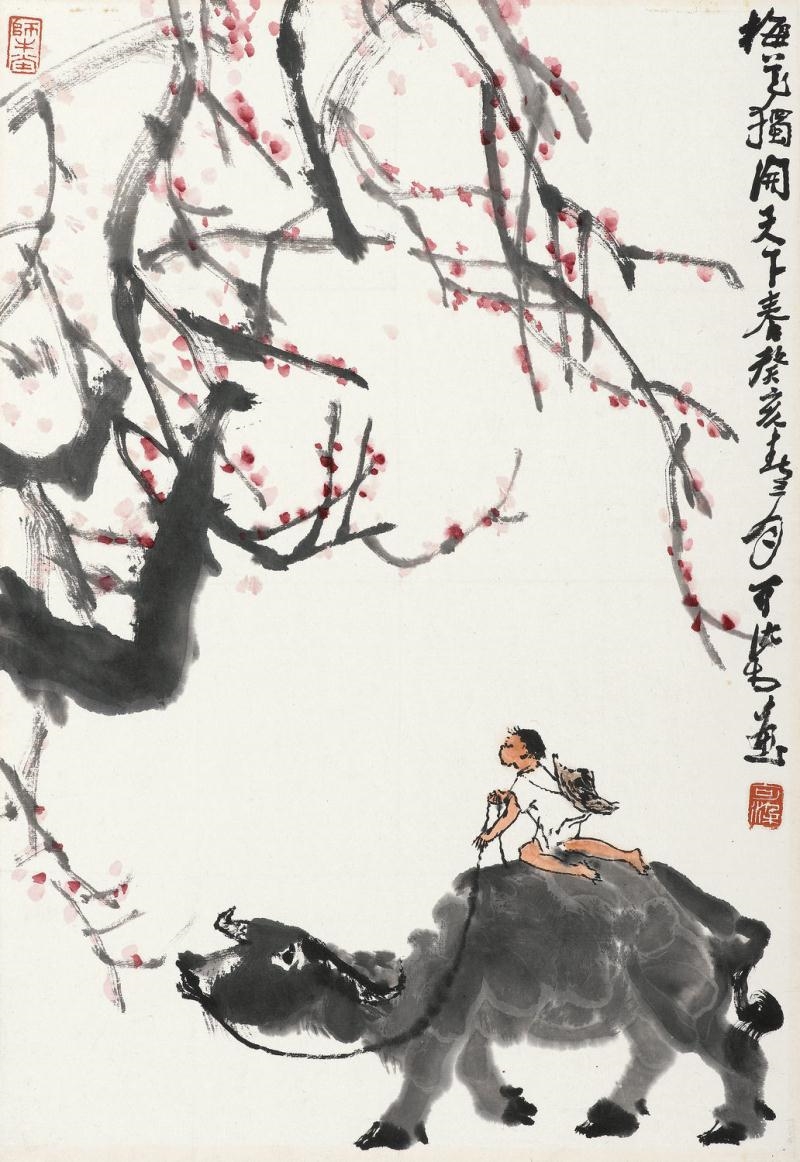 師牛堂
梅花獨開天下春癸亥春三月可染畫
可染